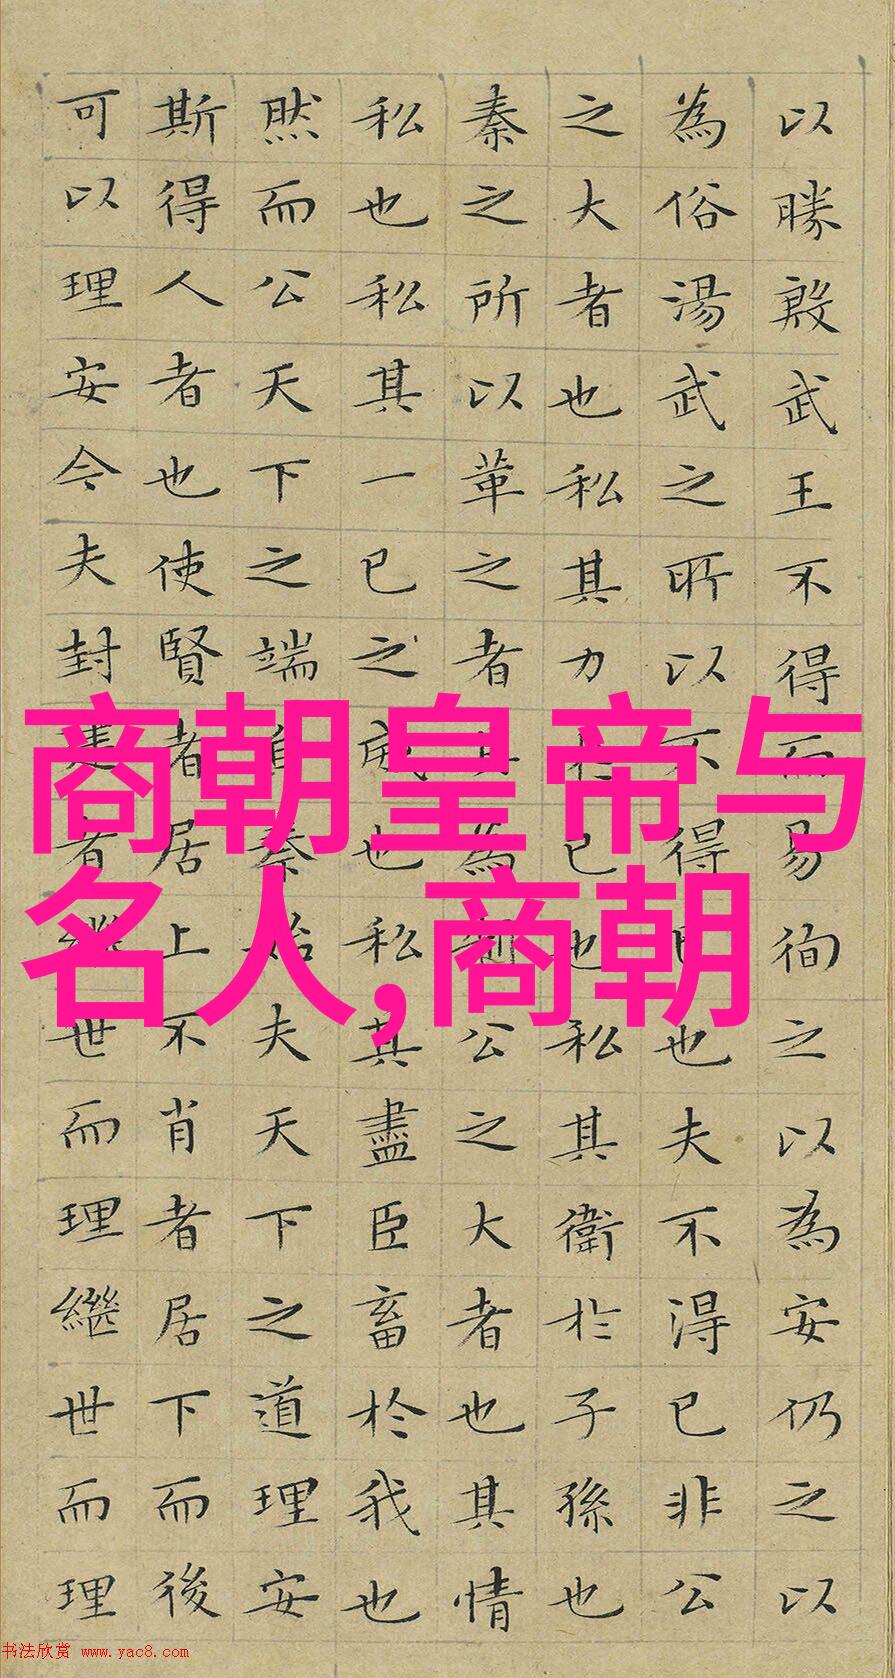 以勝殷武王不得而易徇之以為安仍之以
為俗湯武之所以不得已也夫不得已非公
之大者也私其力於已也私其衛於子孫也
秦之所以革之者其為制公之大者也其情
私也私其一已之威也私其盡臣畜於我也
然而公天下之端自秦始夫天下之道理安
斯得人者也使賢者居上不肖者居下而後
可以理安今夫封建者繼世而理繼世而理
商朝皇帝与
名人,商朝
书法欣赏 www.yac8.com